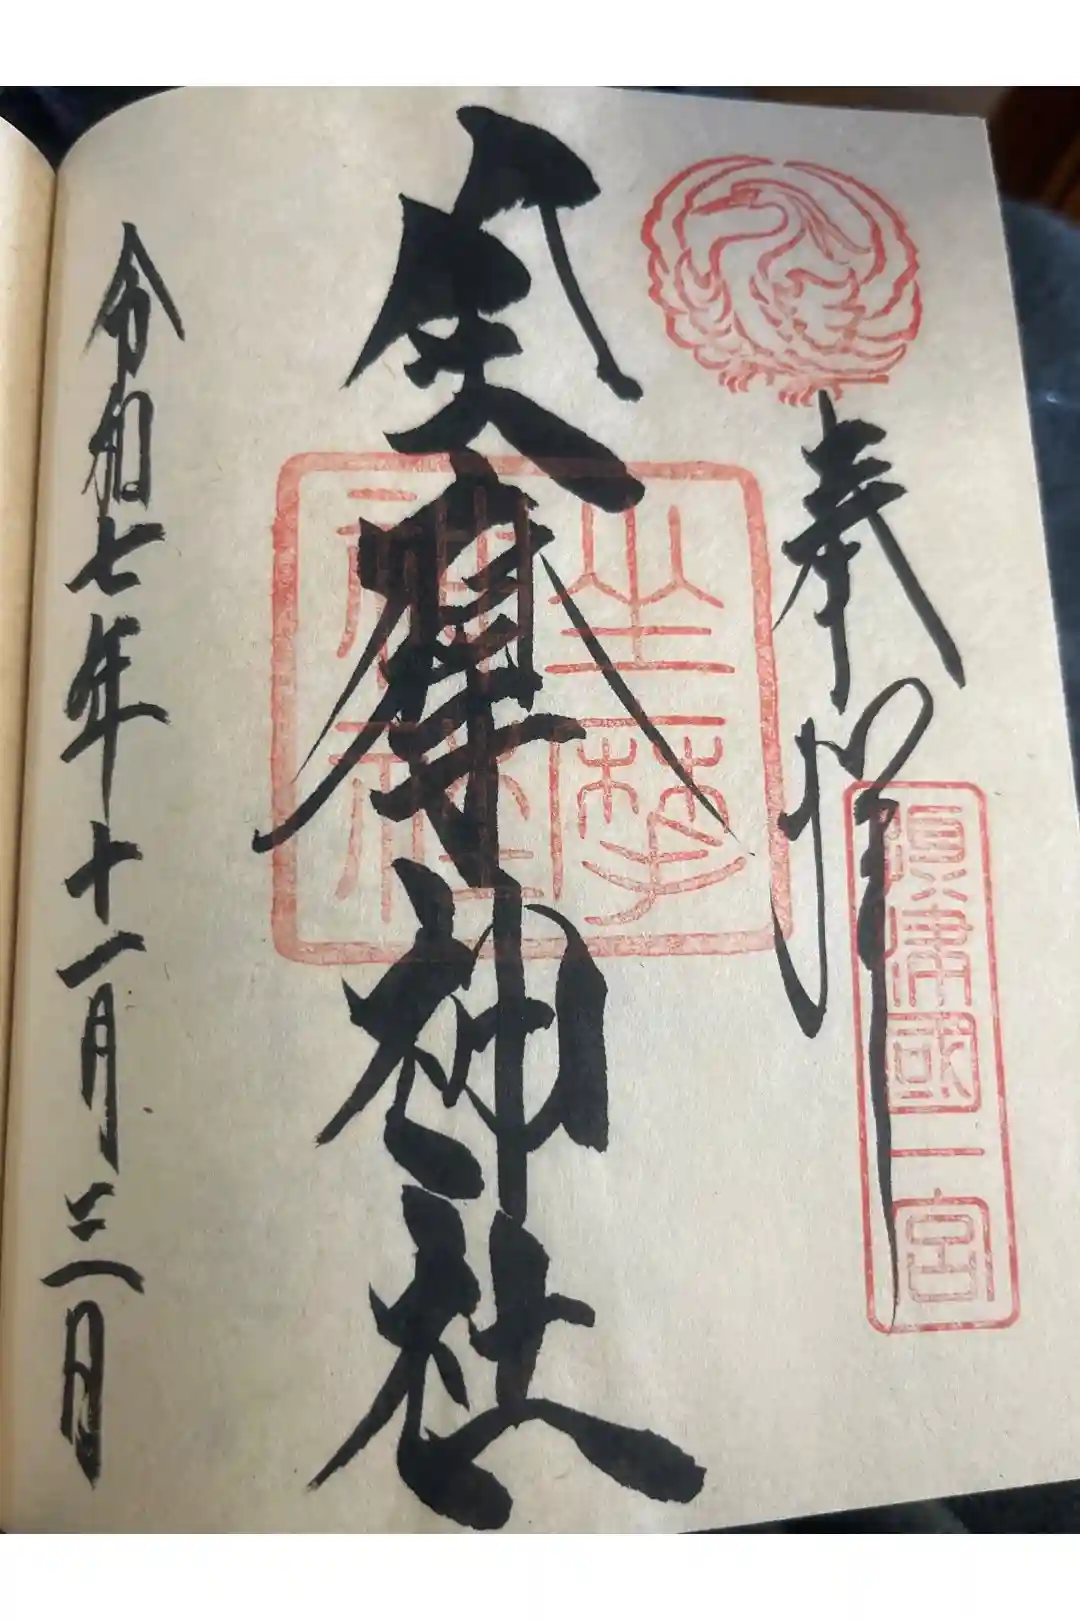 奉拝
攝津國一宮
坐摩神社
坐摩
神社
令和七年十一月三日